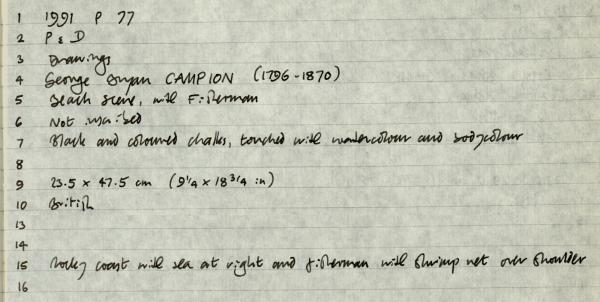 1 1991 P 77
2 P & D
3 Drawings
4 George Bryan CAMPION (1796-1870)
5 Beach scene, with Fisherman
6 Not inscribed
7 Black and coloured chalks, touched with watercolour and bodycolour
8
9 23.5 x 47.5 cm (9 1/4 x 18 3/4 in)
10 British
13
14
15 Rocky coast with sea at right and fisherman with shrimp net over shoulder
16